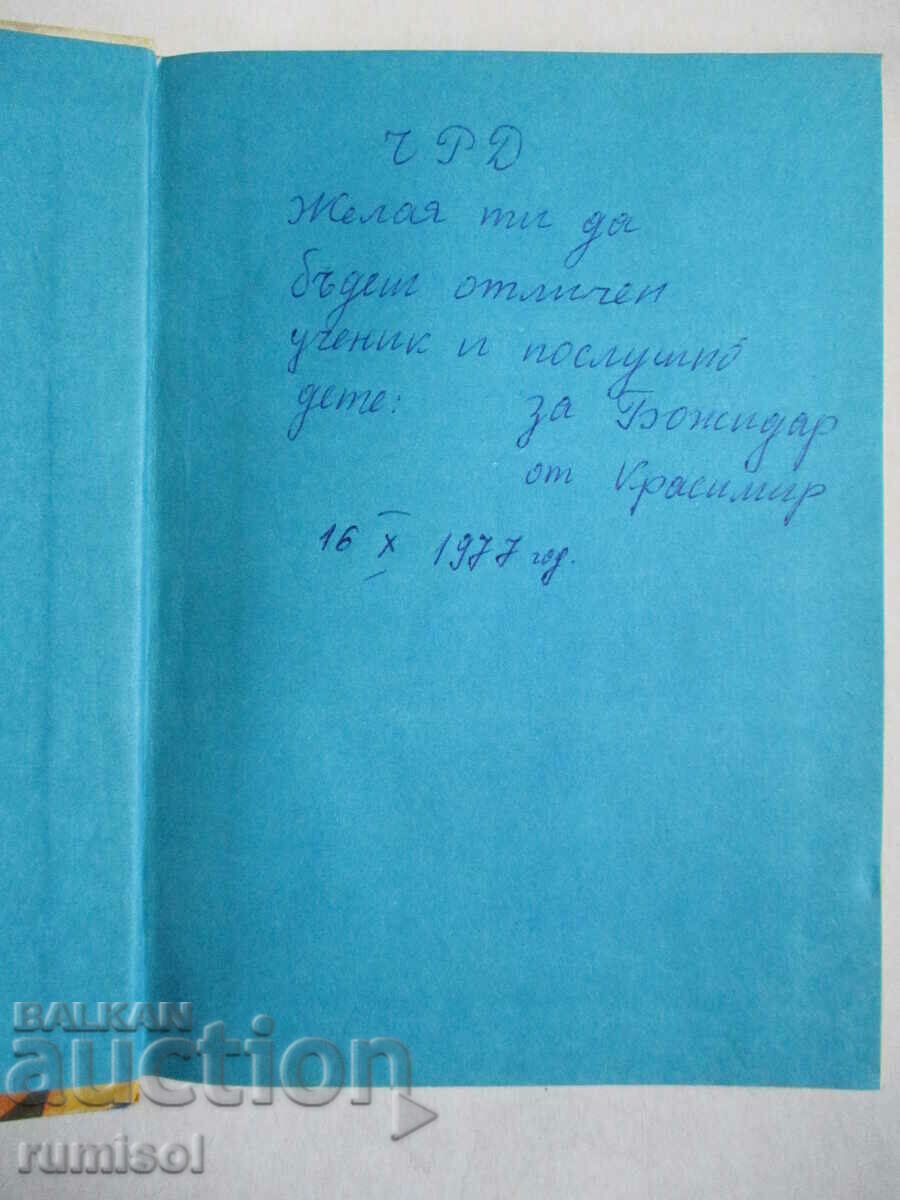 ЧРД
Желая ти да
бъдеш отличен
ученик и послушно
дете: за Божидар
от Красимир
16 X 1977 год.
BALKAN
auction
rumisol